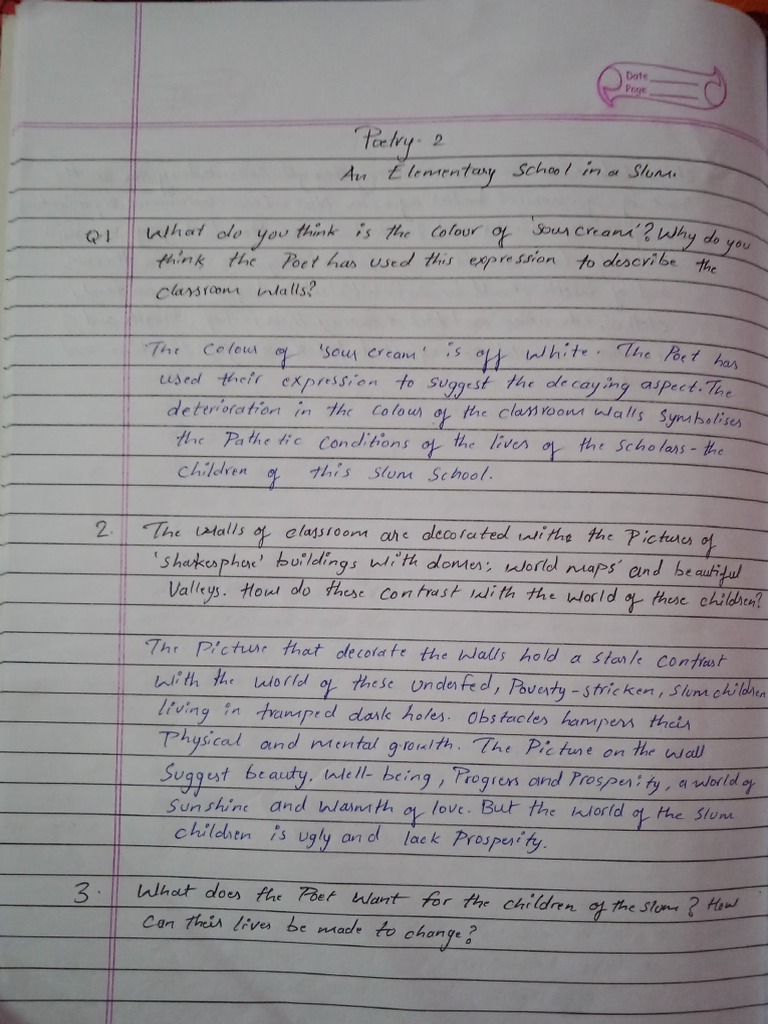 Date
Page
Poetry- 2
An Elementary School in a Slum.
Q1 What do you think is the colour of 'sour cream'? Why do you
think the Poet has used this expression to describe the
classroom walls?
The colour of 'sour cream' is off white. The Poet has
used their expression to suggest the decaying aspect. The
deterioration in the colour of the classroom walls symbolises
the Pathetic conditions of the lives of the scholars - the
children of this slum School.
2. The walls of classroom are decorated withe the Pictures of
'shakesphere' buildings with domes; world maps' and beautiful
Valleys. How do these contrast with the world of these children?
The Picture that decorate the walls hold a stark contrast
with the world of these underfed, Poverty-stricken, slum children
living in tramped dark holes. Obstacles hampers their
Physical and mental growth. The Picture on the wall
Suggest beauty, well-being, Progress and Prosperity, a world of
sunshine and warmth of love. But the world of the slum
children is ugly and lack Prosperity.
3. What does the Poet want for the children of the slum? How
can their lives be made to change?